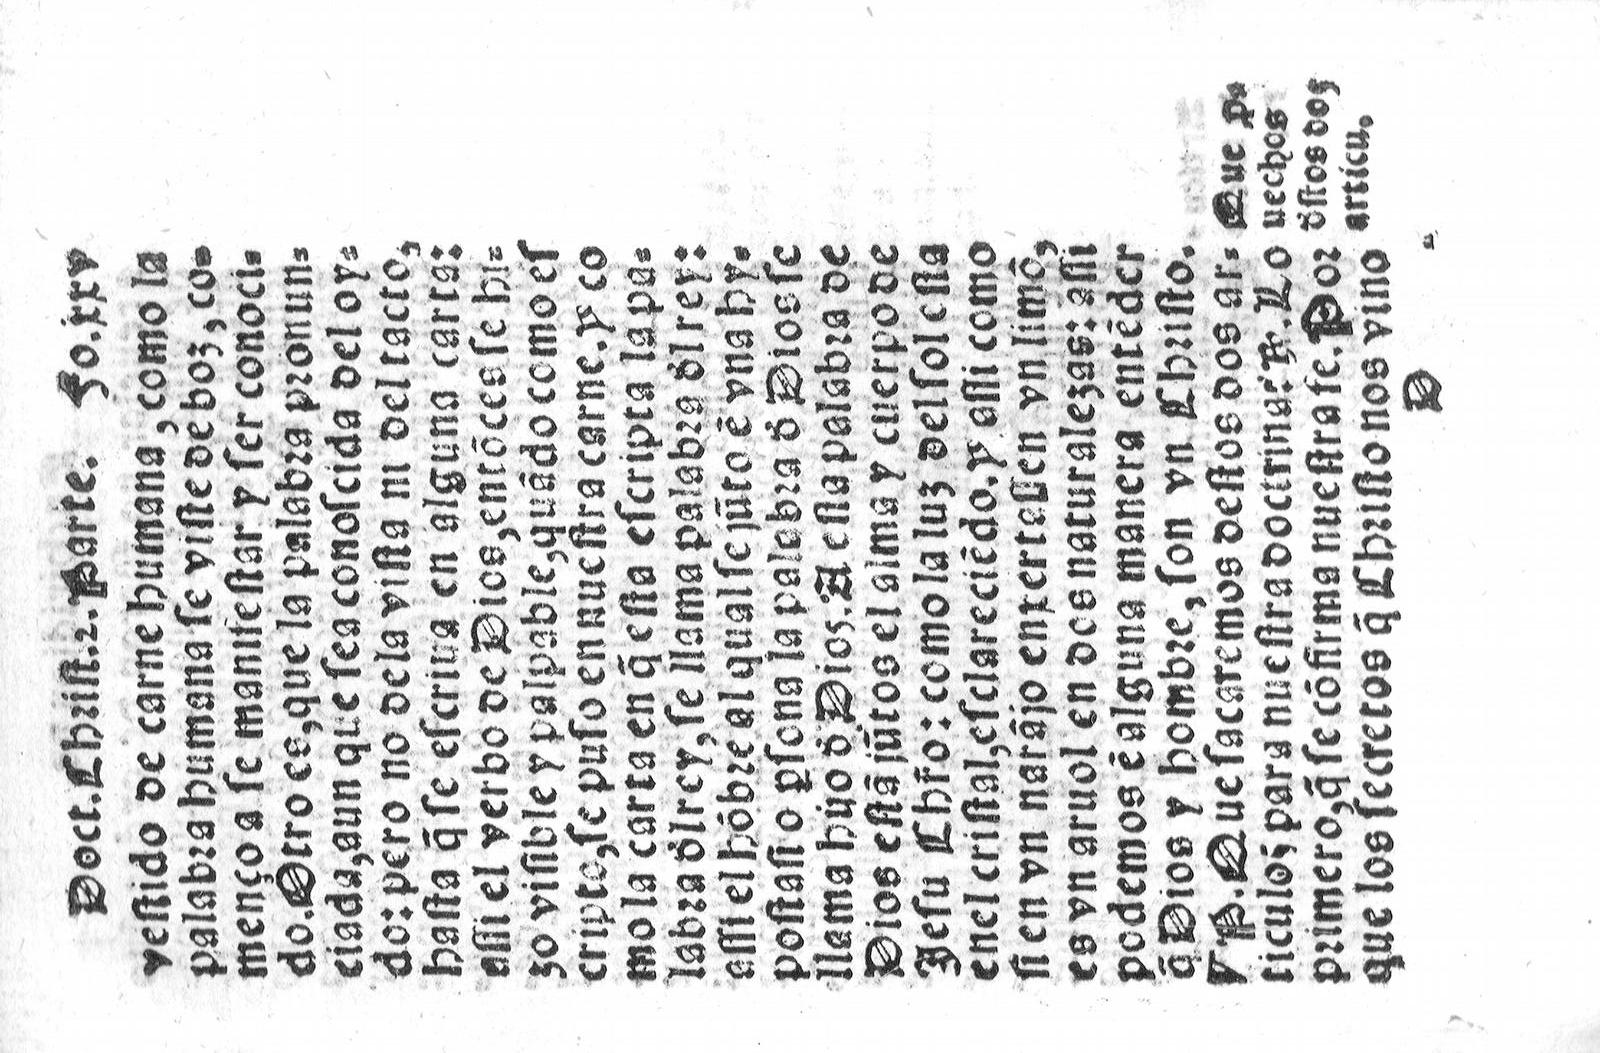 Doct. Christ. 2. Parte. Fo. xxv
vestido de carne humana, como la
palabra humana se viste de boz, co-
menço a se manifestar y ser conoci-
do. Otro es, que la palabra pronun-
ciada, aun que sea conoscida del oy-
do: pero no dela vista ni del tacto,
hasta q̃ se escriua en alguna carta:
assi el verbo de Dios, entõces se hi-
zo visible y palpable, quãdo como es
cripto, se puso en nuestra carne. y co
mo la carta en q̃ esta escripta la pa-
labra d̃l rey, se llama palabra d̃l rey:
assi el hõbre al qual se jũto ẽ vna hy-
postasi o p̱sona la palabra d̃ Dios se
llama hijo d̃ Dios. A esta palabra de
Dios estã jũtos el alma y cuerpo de
Jesu Chr̃o: como la luz del sol esta
enel cristal, esclareciẽdo. y assi como
si en vn narãjo enxertassen vn limõ,
es vn aruol en dos naturalezas: assi
podemos ẽ alguna manera entẽder
q̃ Dios y hombre, son vn Christo.
¶ P. Que sacaremos destos dos ar-
ticulos para nuestra doctrina? R. Lo
primero, q̃ se cõfirma nuestra fe. Por
que los secretos q̃ Christo nos vino
D
Que p̱-
uechos
d̃stos dos
articu.